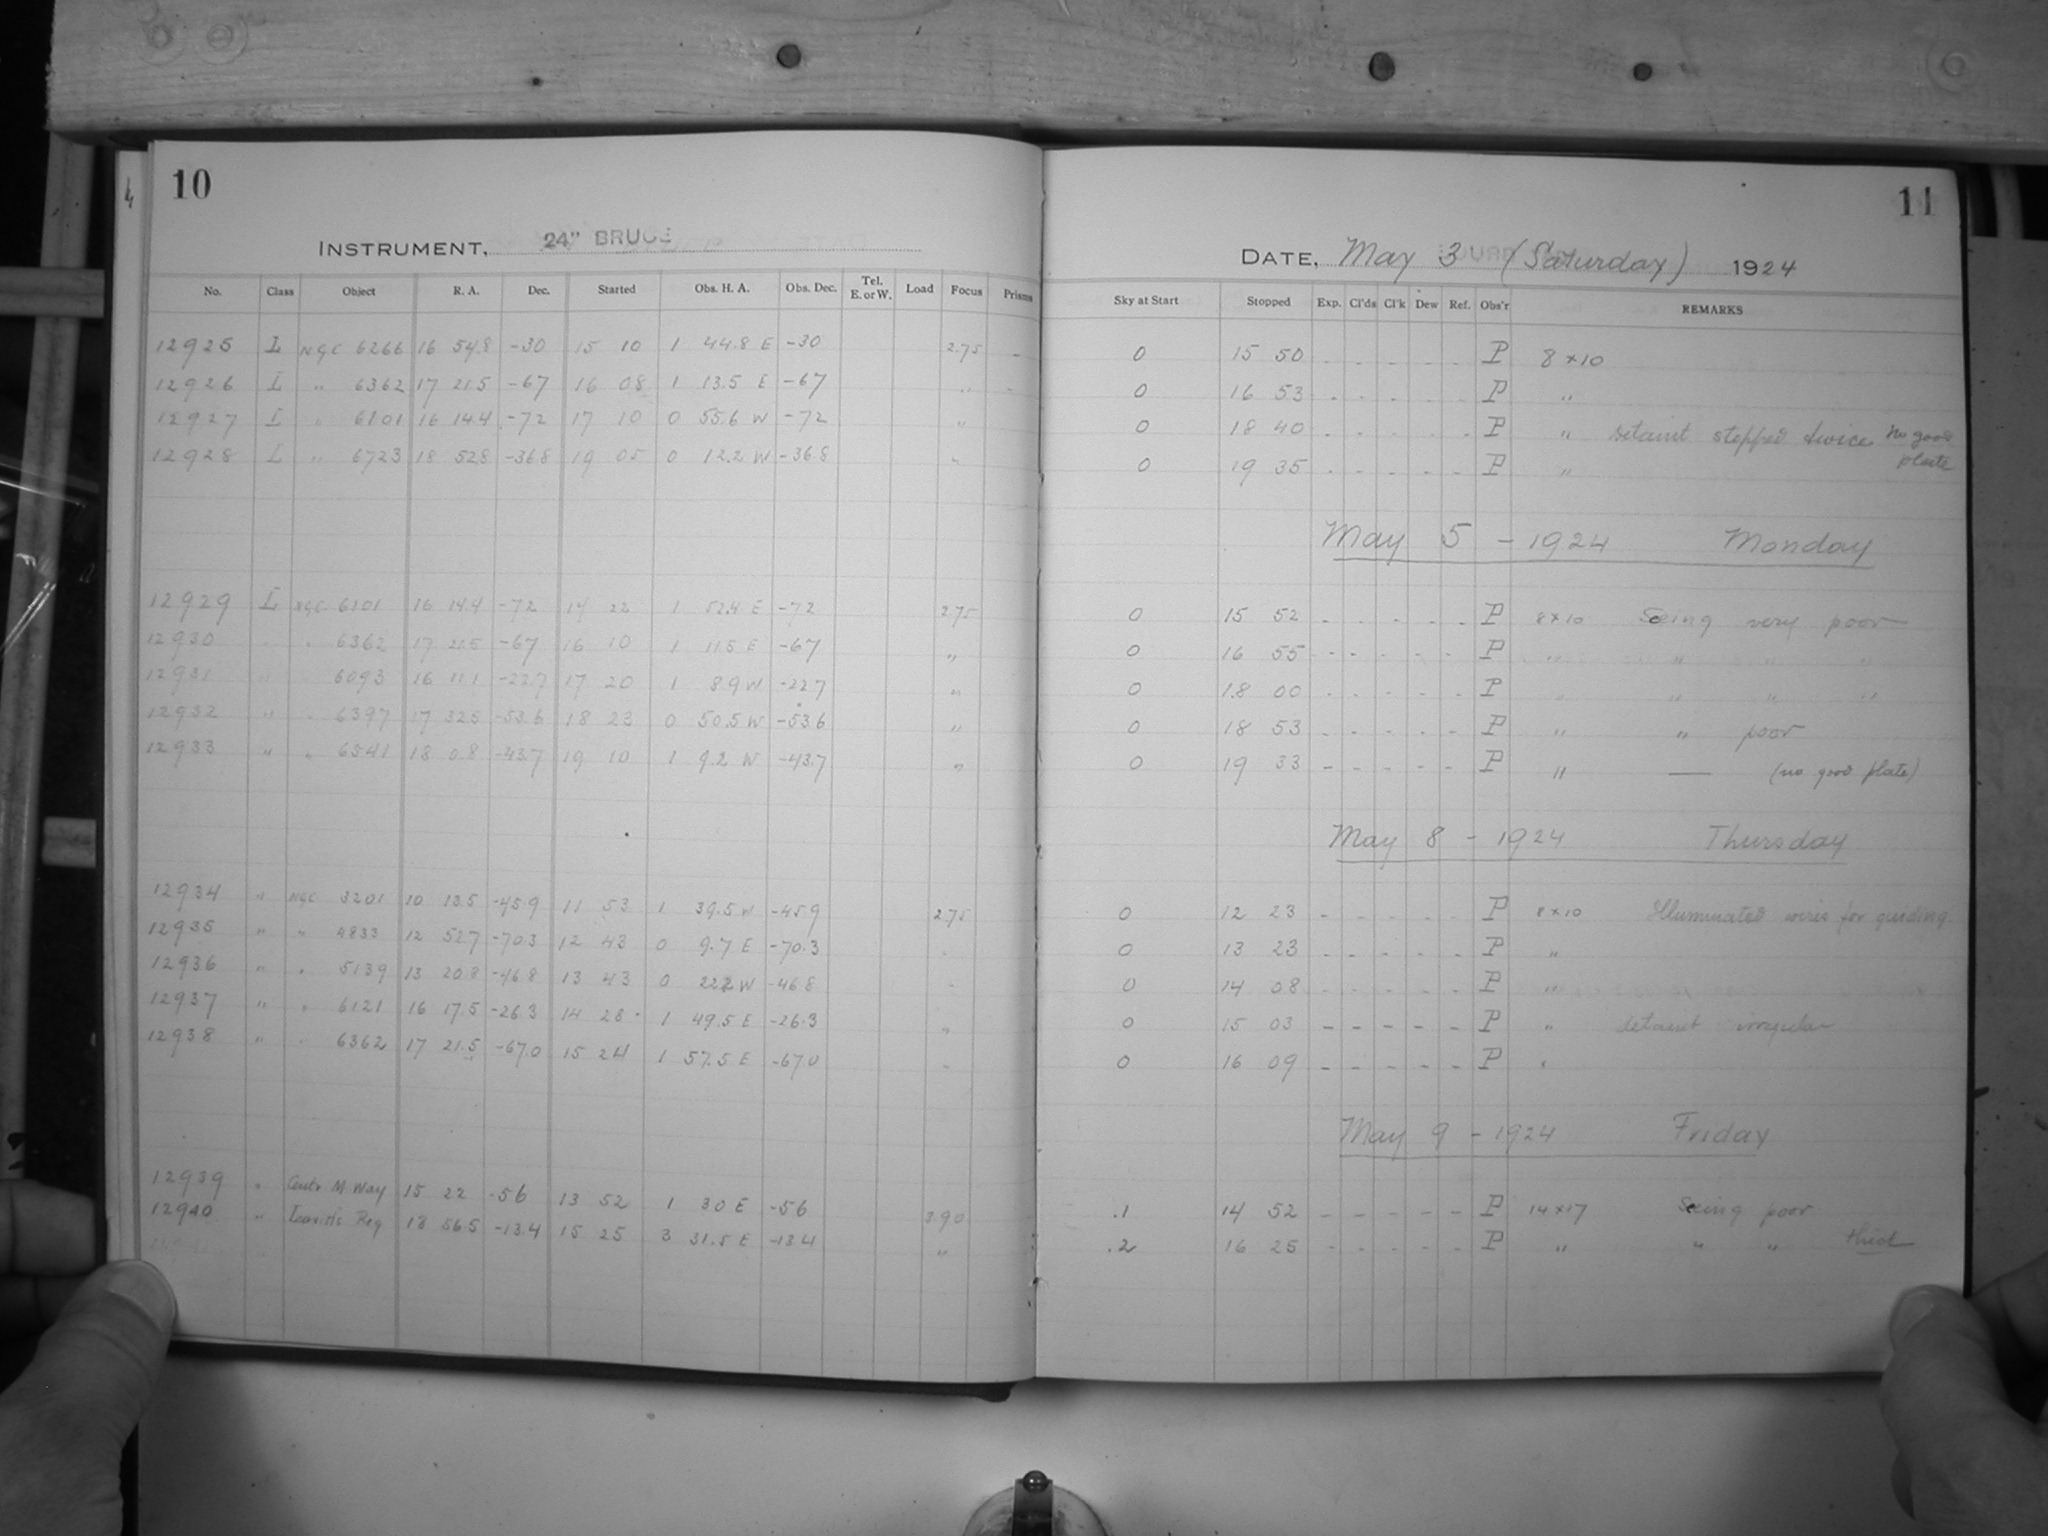 10
INSTRUMENT, 24" BRUCE
No. Class Object R. A. Dec. Started Obs. H. A. Obs. Dec. Tel. E. or W. Load Focus Prisms
12925 L NGC 6266 16 54.8 -30 15 10 1 44.8 E -30 2.75 -
12926 L " 6362 17 21.5 -67 16 08 1 13.5 E -67 " -
12927 L " 6101 16 14.4 -72 17 10 0 55.6 W -72 "
12928 L " 6723 18 52.8 -36.8 19 05 0 12.2 W -36.8 "
12929 L NGC 6101 16 14.4 -72 14 22 1 52.4 E -72 2.75
12930 " 6362 17 21.5 -67 16 10 1 11.5 E -67 "
12931 " 6093 16 11.1 -22.7 17 20 1 8.9 W -22.7 "
12932 " " 6397 17 32.5 -53.6 18 23 0 50.5 W -53.6 "
12933 " " 6541 18 0.8 -43.7 19 10 1 9.2 W -43.7 "
12934 " NGC 3201 10 13.5 -45.9 11 53 1 39.5 W -45.9 2.75
12935 " " 4833 12 52.7 -70.3 12 43 0 9.7 E -70.3
12936 " " 5139 13 20.8 -46.8 13 43 0 22.2 W -46.8 "
12937 " " 6121 16 17.5 -26.3 14 28 1 49.5 E -26.3 "
12938 " " 6362 17 21.5 -67.0 15 24 1 57.5 E -67.0 "
12939 " Centr M. Way 15 22 -56 13 52 1 30 E -56 3.90
12940 " Reg 18 56.5 -13.4 15 25 3 31.5 E -13.4 "
11
DATE, May 3 (Saturday) 1924
Sky at Start Stopped Exp. Cl'ds Cl'k Dew Ref. Obs'r REMARKS
0 15 50 - - - - - P 8 x 10
0 16 53 - - - - - P "
0 18 40 - - - - - P " stopped twice no good plate
0 19 35 - - - - - P "
May 5 - 1924 Monday
0 15 52 - - - - - P 8 x 10 Seeing very poor
0 16 55 - - - - - P " " " "
0 18 00 - - - - - P " " " "
0 18 53 - - - - - P " " poor
0 19 33 - - - - - P " — (no good plate)
May 8 - 1924 Thursday
0 12 23 - - - - - P 8 x 10 Illuminated wires for guiding
0 13 23 - - - - - P "
0 14 08 - - - - - P "
0 15 03 - - - - - P " irregular
0 16 09 - - - - - P "
May 9 - 1924 Friday
.1 14 52 - - - - - P 14 x 17 Seeing poor
.2 16 25 - - - - - P " " "